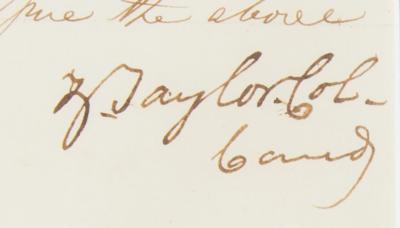 the above
Z Taylor. Col-
Comd